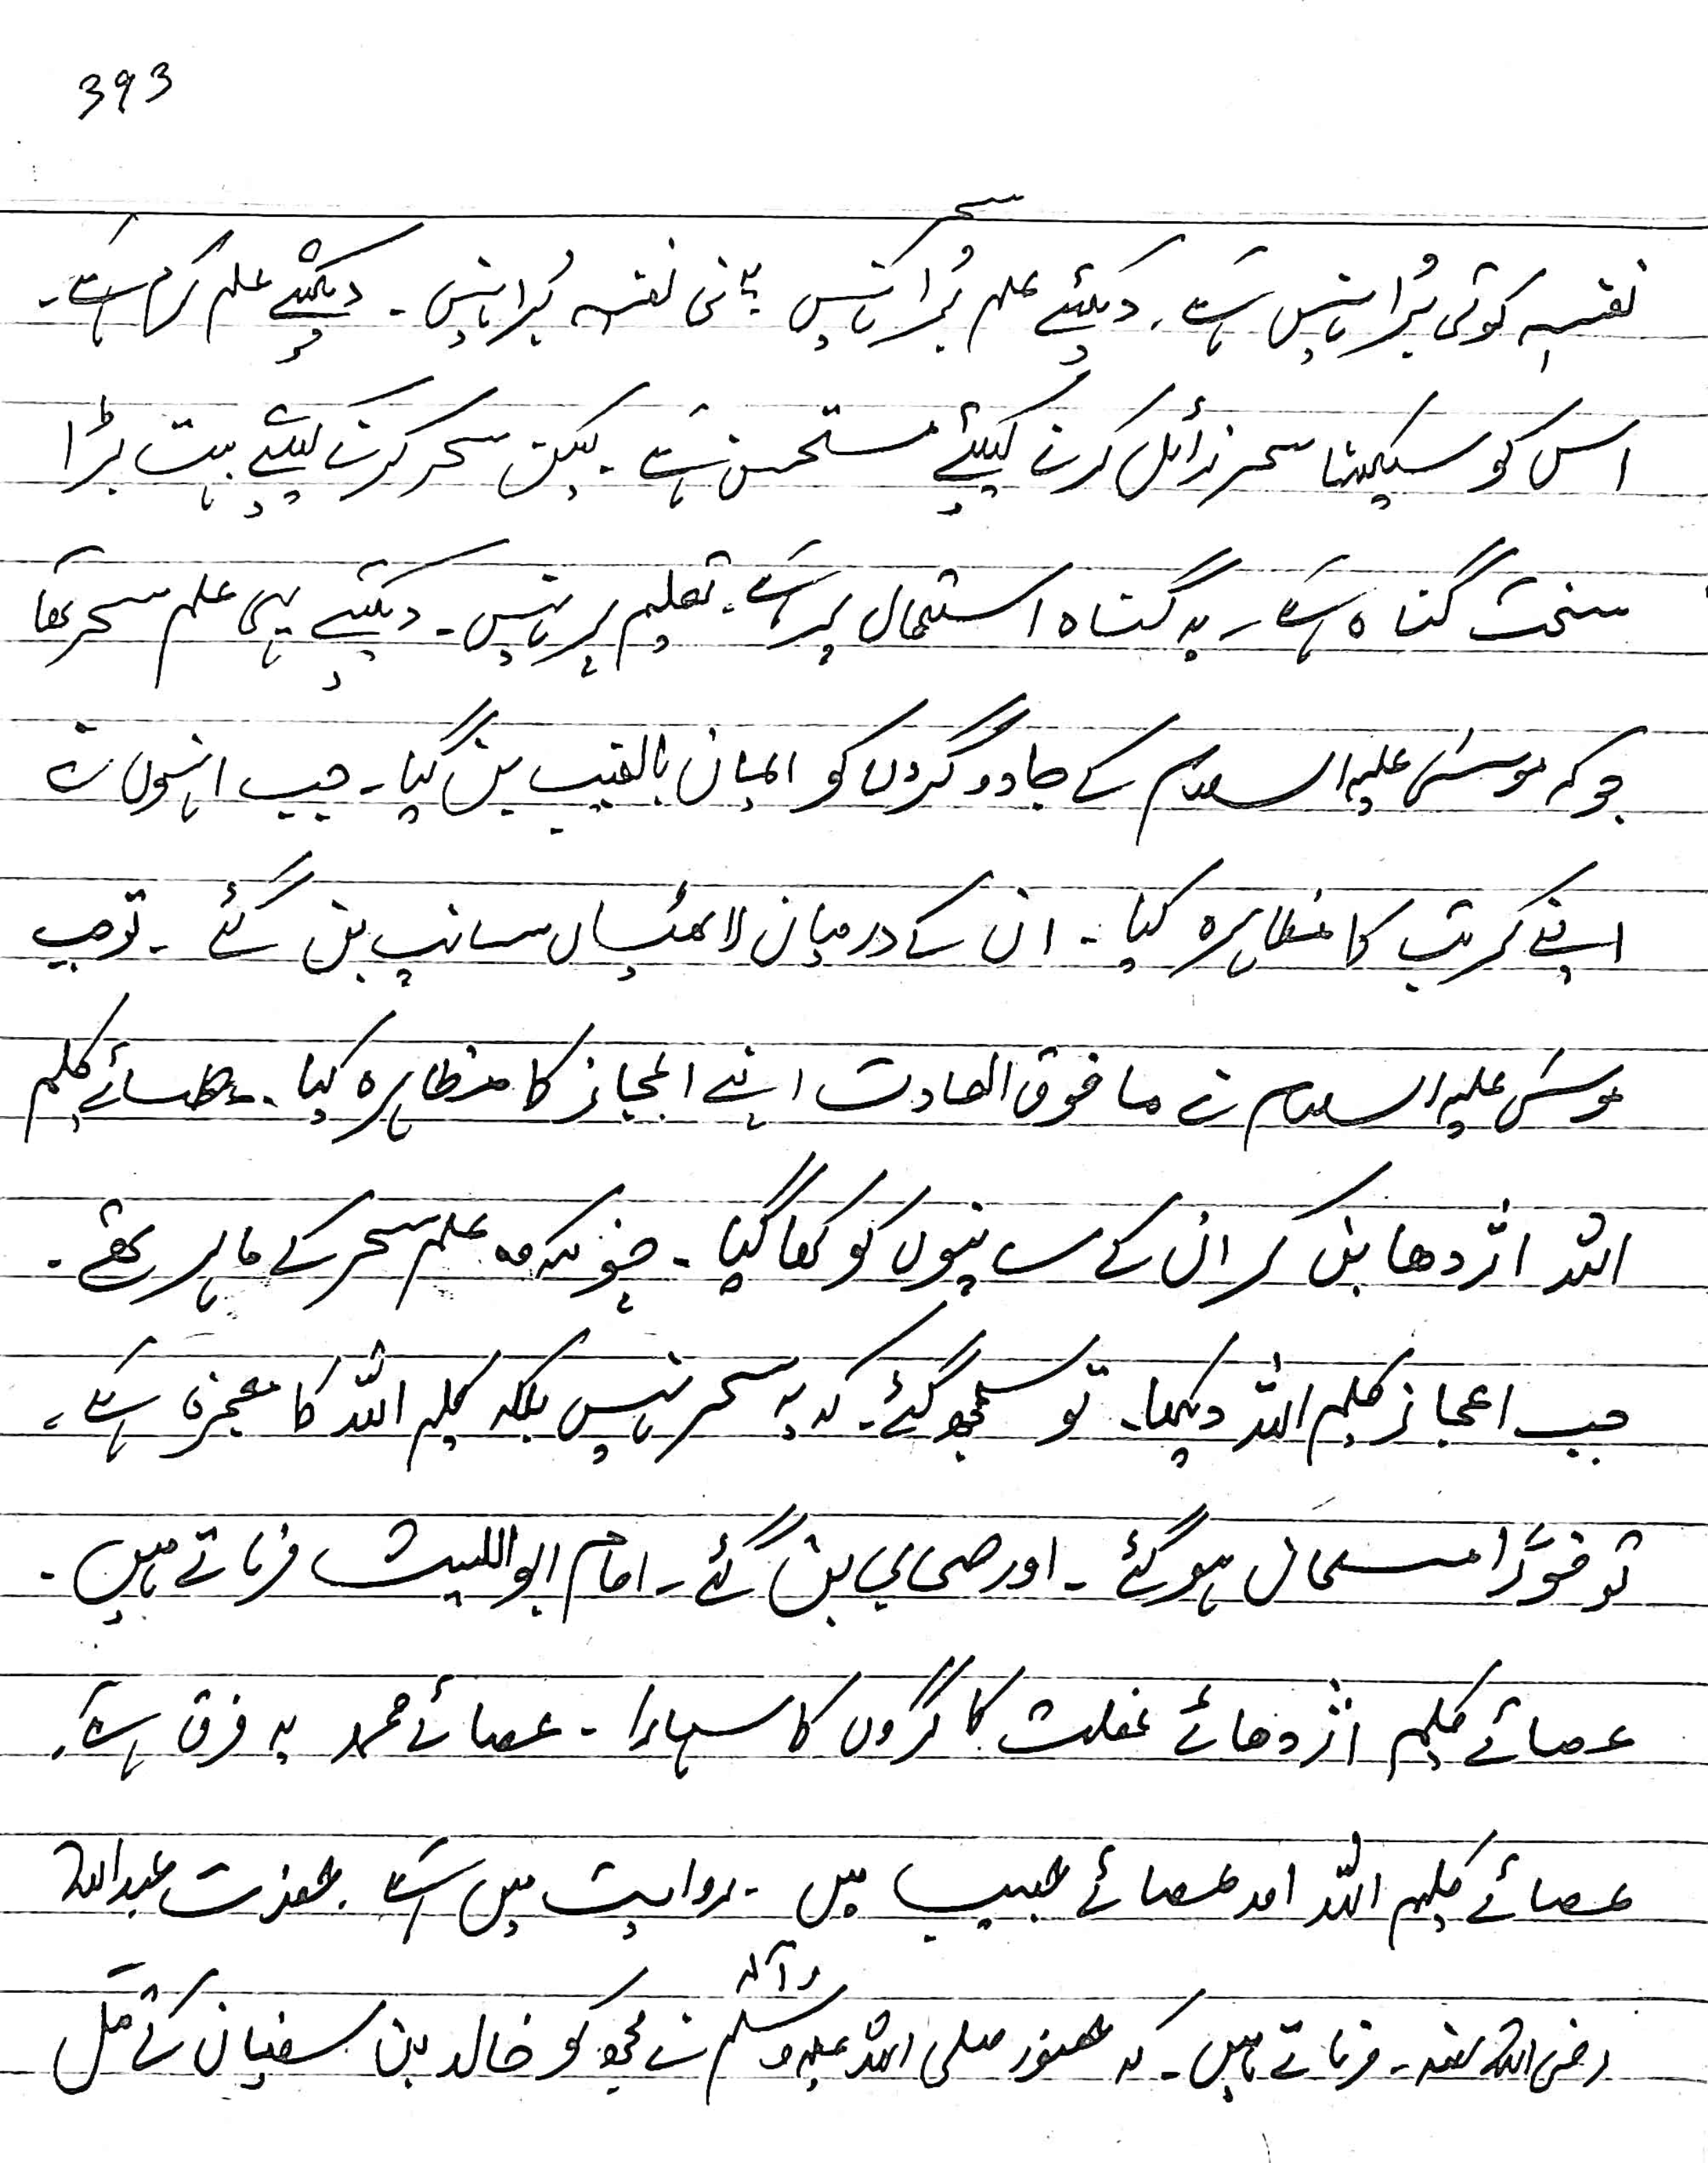 393
سحر
نفسہ کوئی بُرا نہیں ہے، دیکھئے علم بُرا نہیں فی نفسہ بُرا نہیں ۔ دیکھئے علم ہے۔
اس کو سیکھنا سحر زائل کرنے کیلئے مستحسن ہے ۔ لیکن سحر کرنے کیلئے بہت بڑا
سخت گناہ ہے ۔ یہ گناہ استعمال پر ہے ۔ تعلیم پر نہیں ۔ دیکھئے یہی علم سحر تھا
جو کہ موسیٰ علیہ السلام کے جادوگروں کو ایمان بالغیب بن گیا ۔ جب انہوں نے
اپنے کرتب کا مظاہرہ کیا ۔ ان کے درمیان لاٹھیاں سانپ بن گئے ۔ تو جب
موسیٰ علیہ السلام نے ما فوق العادت اپنے اعجاز کا مظاہرہ کیا ۔ عصائے کلیم
اللہ اژدھا بن کر ان کے سانپوں کو کھا گیا ۔ چونکہ وہ علم سحر کے ماہر تھے ۔
جب اعجاز کلیم اللہ دیکھا ۔ تو سمجھ گئے ۔ کہ یہ سحر نہیں بلکہ کلیم اللہ کا معجزہ ہے ۔
تو فورًا مسلمان ہو گئے ۔ اور صحابی بن گئے ۔ امام ابو اللیث فرماتے ہیں ۔
عصائے کلیم اژدھائے غفلت کا گروں کا سہارا ۔ عصائے محمد یہ فرق ہے ۔
عصائے کلیم اللہ اور عصائے حبیب میں ۔ روایت میں ہے ۔ حضرت عبداللہ
وآلہ
رضی اللہ عنہ ۔ فرماتے ہیں ۔ کہ حضور صلی اللہ علیہ وسلم نے مجھ کو خالد بن سفیان کے قتل